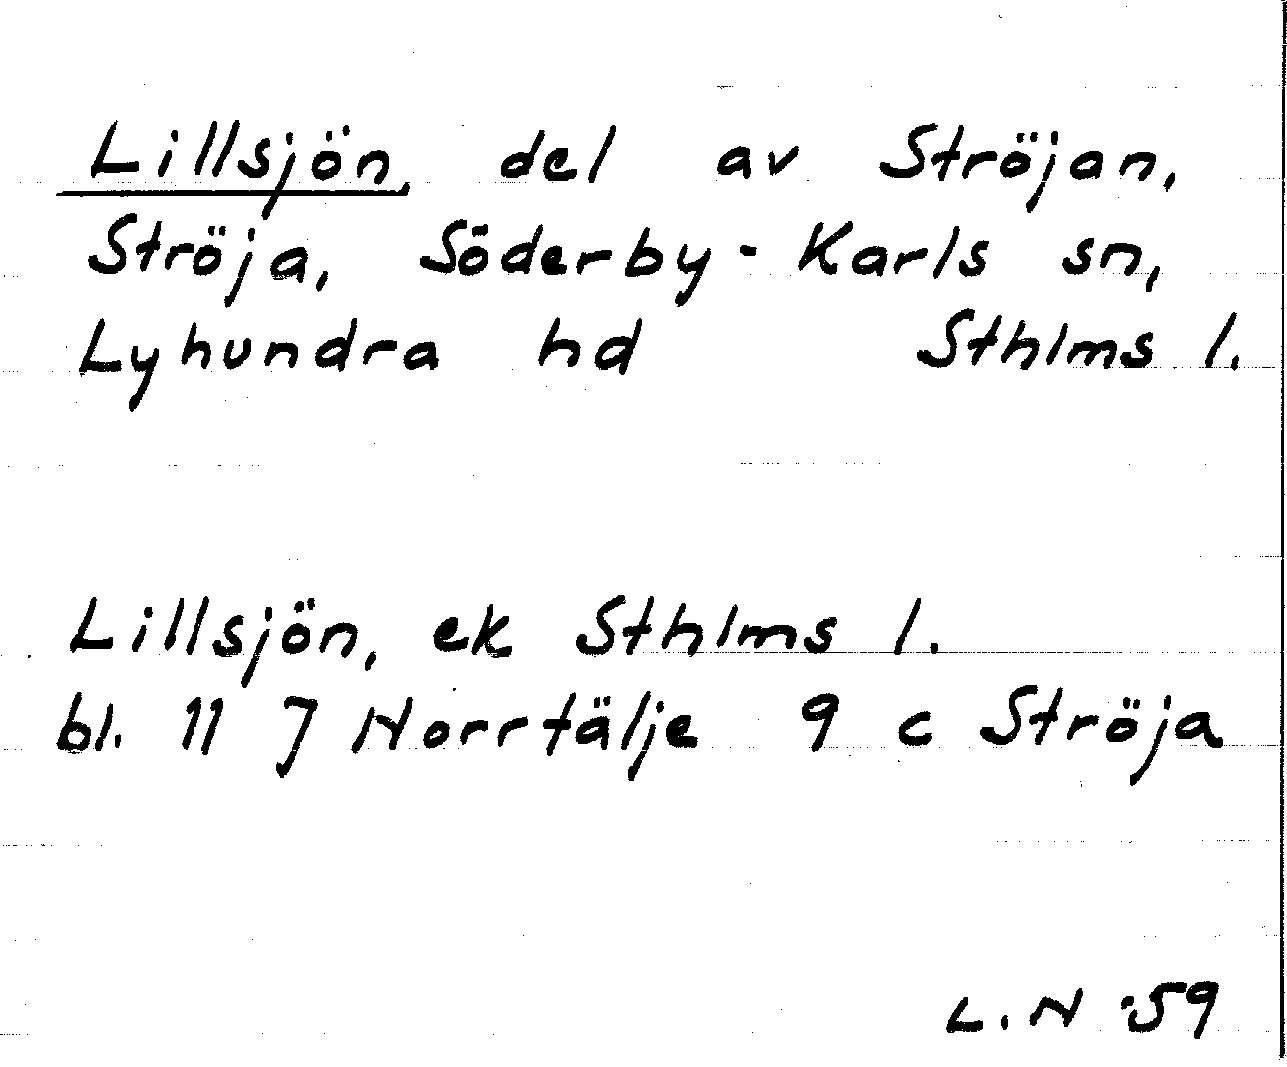 Lillsjön, del av Ströjan,
Ströja, Söderby-Karls sn,
Lyhundra hd Sthlms l.
Lillsjön, ek Sthlms l.
bl. 11 J Norrtälje 9 c Ströja
L.N -59